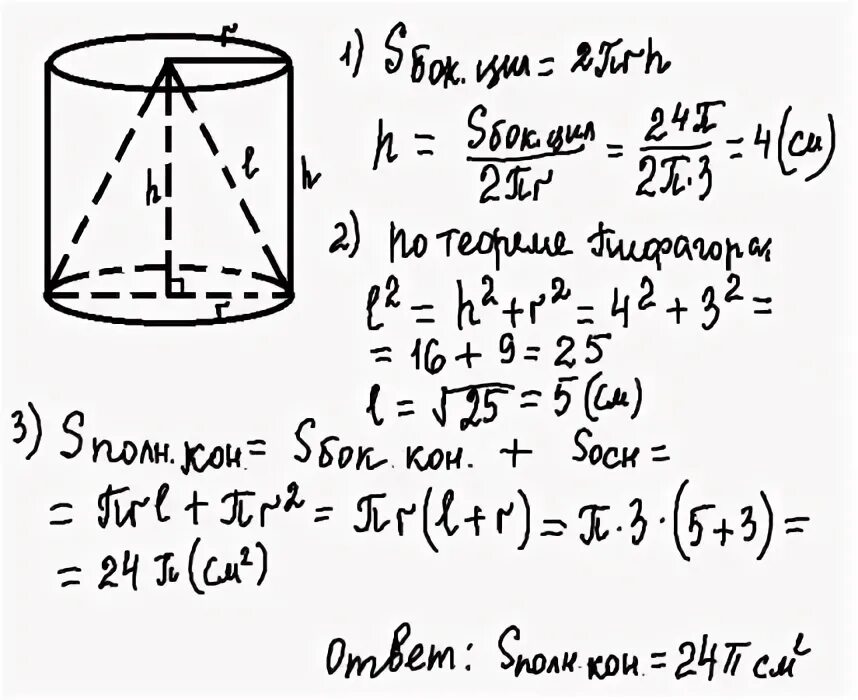 r
h
l
h
r
1) Sбок.цил = 2πrh
h = Sбок.цил / 2πr = 24π / 2π·3 = 4 (см)
2) по теореме Пифагора
l² = h² + r² = 4² + 3² =
= 16 + 9 = 25
l = √25 = 5 (см)
3) Sполн.кон. = Sбок.кон. + Sосн =
= πrl + πr² = πr(l+r) = π·3·(5+3) =
= 24π (см²)
Ответ: Sполн.кон. = 24π см²